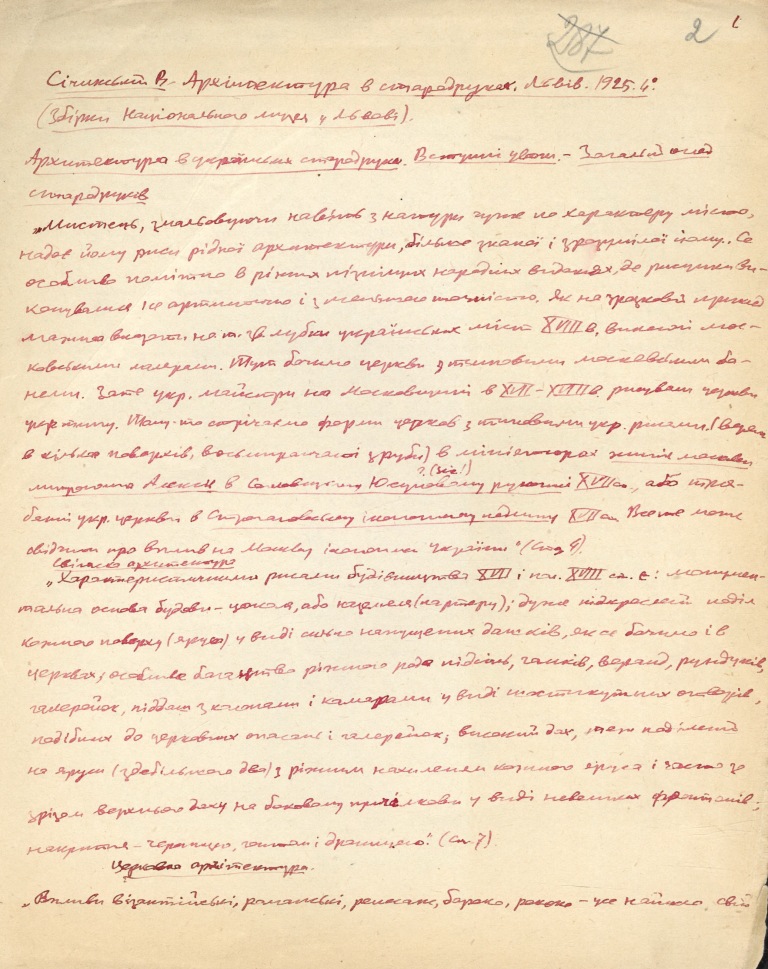 287 2 1
Січинський В. Архітектура в стародруках. Львів. 1925. 4°.
(Збірки Національного музею у Львові).
Архитектура в українських стародруках. Вступні уваги. – Загальний огляд
стародруків
„Мистець, змальовуючи навіть з натури чуже по характеру місто,
надає йому риси рідної архитектури, більше знаної і зрозумілої йому. Се
особливо помітно в ріжних пізніших народніх виданнях, де рисунки ви-
конувалися не артистично і з меншою точністю. Як на зразковий приклад
можна вказати на т. зв. лубки українських міст XVIII в, виконані мос-
ковськими малярами. Тут бачимо церкви з типовими московськими ба-
нями. Зате укр. майстри на Московщині в XVII–XVIII в. рисували церкви
укр. типу. Тому-то стрічаємо форми церков з типовими укр. рисами (верхи
в кілька поверхів, восьмигранчасті зруби) в мініятюрах житія москов.
митрополита Алексія в Юсуповому рукописі XVII ст., або трьо-
? (sic!)
банні укр. церкви в Строгановському іконописному XVII ст. Все те може
свідчити про вплив на Москву іконописи України" (Стор 9).
Світська архитектура
„Характеристичними рисами будівництва XVII і поч. XVIII ст. є: монумен-
тальна основа будови – цоколя, або (партеру); дуже підкреслений поділ
кожного поверху (яруса) у виді сильно напущених дашків, як се бачимо і в
церквах; особливе багацтво ріжного рода підсінь, ганків, веранд, рундуків,
галерейок, піддаш з колонами і камарами у виді шостикутних отворів,
подібних до церковних опасань і галерейок; високий дах, теж поділений
на яруси (здебільшого два) з ріжним нахилення кожного яруса і часто зо
зрізом верхнього даху на боковому причілкови у виді невеликих фронтонів;
накриття – черепицею, гонтом і драницею." (Ст. 7).
Церковна архітектура.
„Впливи візантійські, романські, ренесанс, бароко, рококо – усе найшло свій